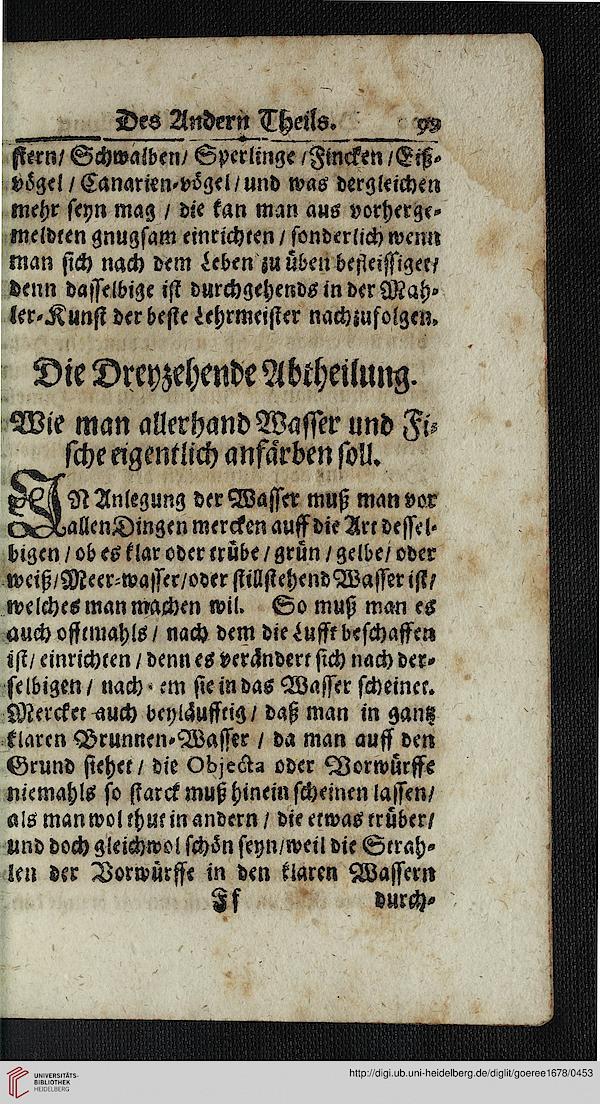 Des Andern Theils. 99
stern/ Schwalben/ Sperlinge /Fincken /Eiß-
vögel / Canarien-vögel/und was dergleichen
mehr seyn mag / die kan man aus vorherge-
meldten gnugsam einrichten / sonderlich wenn
man sich nach dem Leben zu üben befleissiget/
denn dasselbige ist durchgehends in der Mah-
ler-Kunst der beste Lehrmeister nachzufolgen.
Die Dreyzehende Abtheilung.
Wie man allerhand Wasser und Fi-
sche eigentlich anfärben soll.
IN Anlegung der Wasser muß man vor
allen Dingen mercken auff die Art dessel-
bigen / ob es klar oder trübe / grün / gelbe/ oder
weiß/Meer-wasser/oder stillstehend Wasser ist/
welches man machen wil. So muß man es
auch offtmahls / nach dem die Lufft beschaffen
ist/ einrichten / denn es verändert sich nach der-
selbigen / nach em sie in das Wasser scheinet.
Mercket auch beyläufftig / daß man in gantz
klaren Brunnen-Wasser / da man auff den
Grund siehet / die Objecta oder Vorwürffe
niemahls so starck muß hinein scheinen lassen/
als man wol thut in andern / die etwas trüber/
und doch gleichwol schön seyn/weil die Strah-
len der Vorwürffe in den klaren Wassern
Ff durch-
UNIVERSITÄTS-
BIBLIOTHEK
HEIDELBERG
http://digi.ub.uni-heidelberg.de/diglit/goeree1678/0453